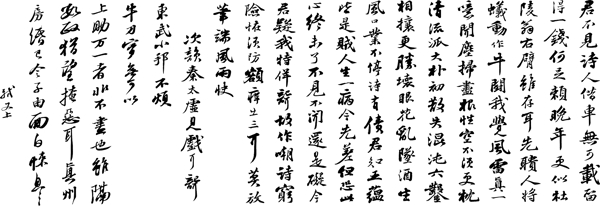 君不見詩人借車無可載留
得一錢何足賴晚年更似杜
陵翁右臂雖存耳先聵人將
蟻動作牛鬭我覺風雷真一
噫聞塵掃盡根性空不須更枕
清流派大朴初散失混沌六鑿
相攘更勝壞眼花亂墜酒生
風口業不停詩有債君知五蘊
皆是賊人生一病今先差但恐此
心終未了不見不聞還是礙今
君疑我特佯聾故作嘲詩窮
險怪須防額癢出三耳莫放
筆端風雨快
次韻秦太虛見戲耳聾
東武小邦不煩
牛刀實無可以
上助萬一者非不盡也雖隔
數政猶望掩惡耳真州
房緡已令子由面白悚息
軾又上